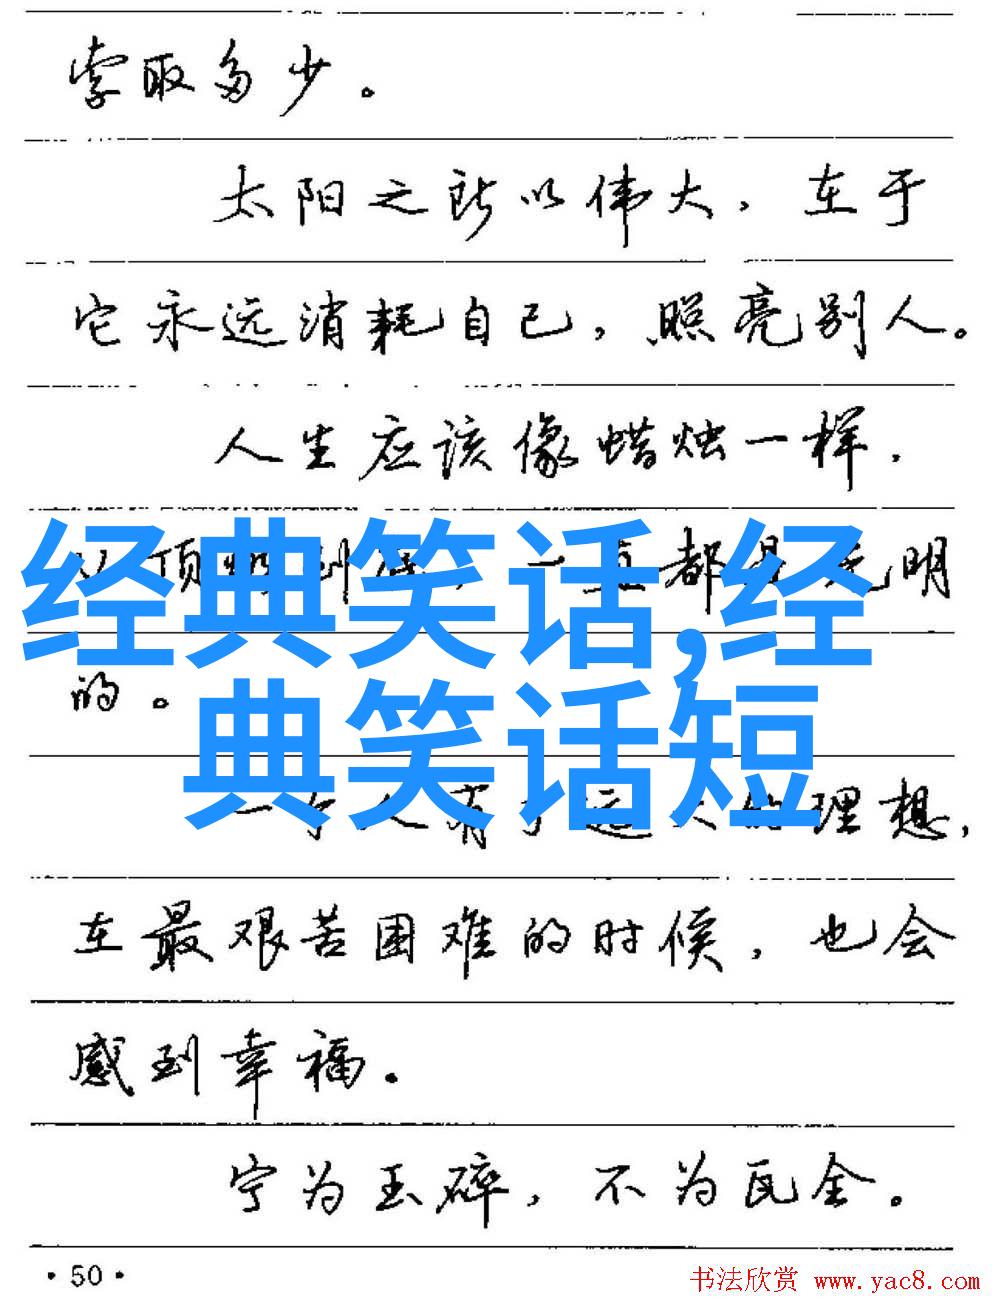 索取多少。
太阳之所以伟大，在于
它永远消耗自己，照亮别人。
人生应该像蜡烛一样，
从顶燃到底，一直都是光明
的。
经典笑话,经
典笑话短
一个人有了远大的理想，
在最艰苦困难的时候，也会
感到幸福。
宁为玉碎，不为瓦全。
·50·
书法欣赏 www.yac8.com